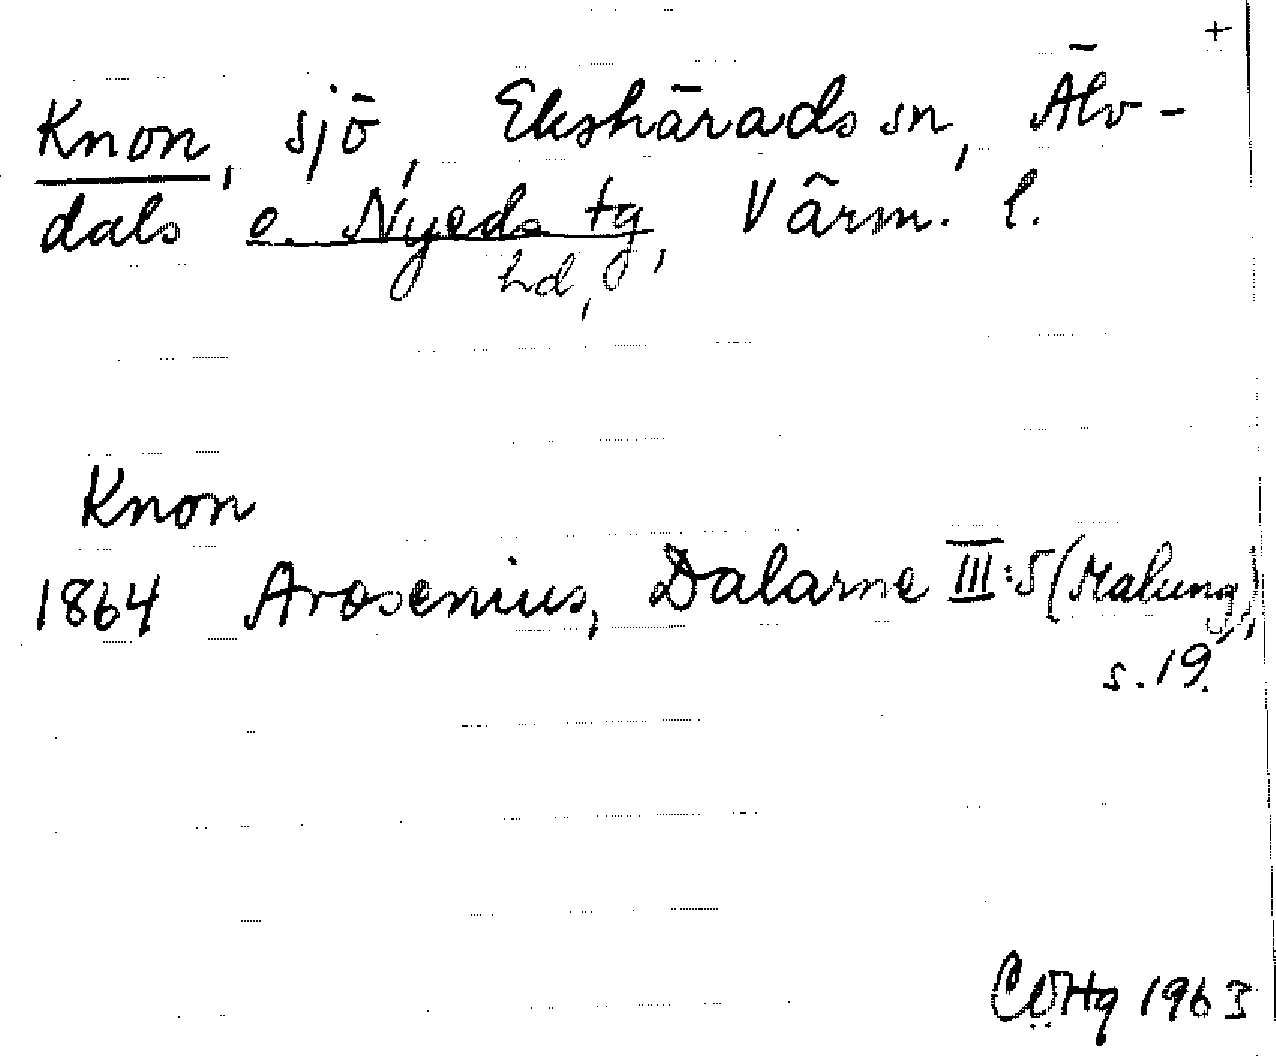 +
Knon, sjö, Ekshärads sn, Älv-
dals o. Nyeds tg, Värm. l.
hd,
Knon
1864 Arosenius, Dalarne III:5 (Malung),
s. 19.
1963